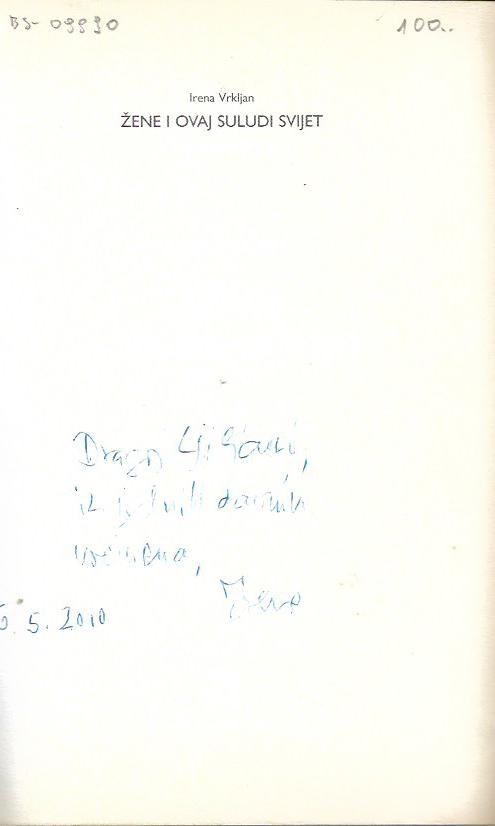 BS- 09990
100..
Irena Vrkljan
ŽENE I OVAJ SULUDI SVIJET
Dragoj Ljiljani,
iz davnih
vremena,
Irena
5. 2010